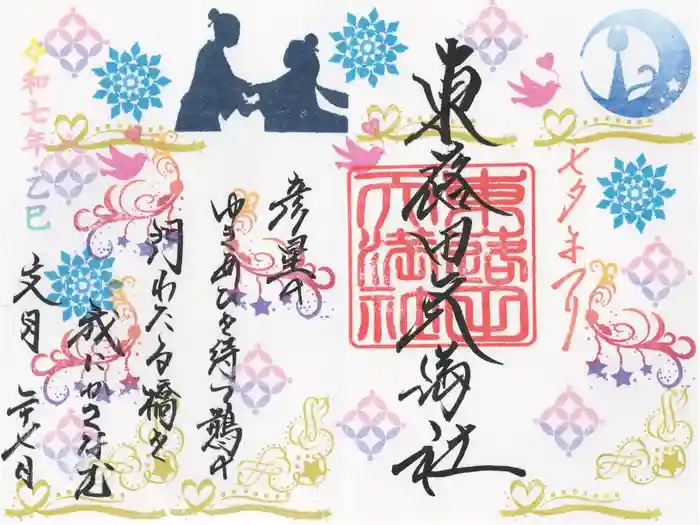 七夕まつり
東蕗田天満社
東蕗田
天満社
彦星の
ゆきあひを待つ鵲の
門わたる橋を
我にかさなむ
令和七年乙巳
文月 二十七日